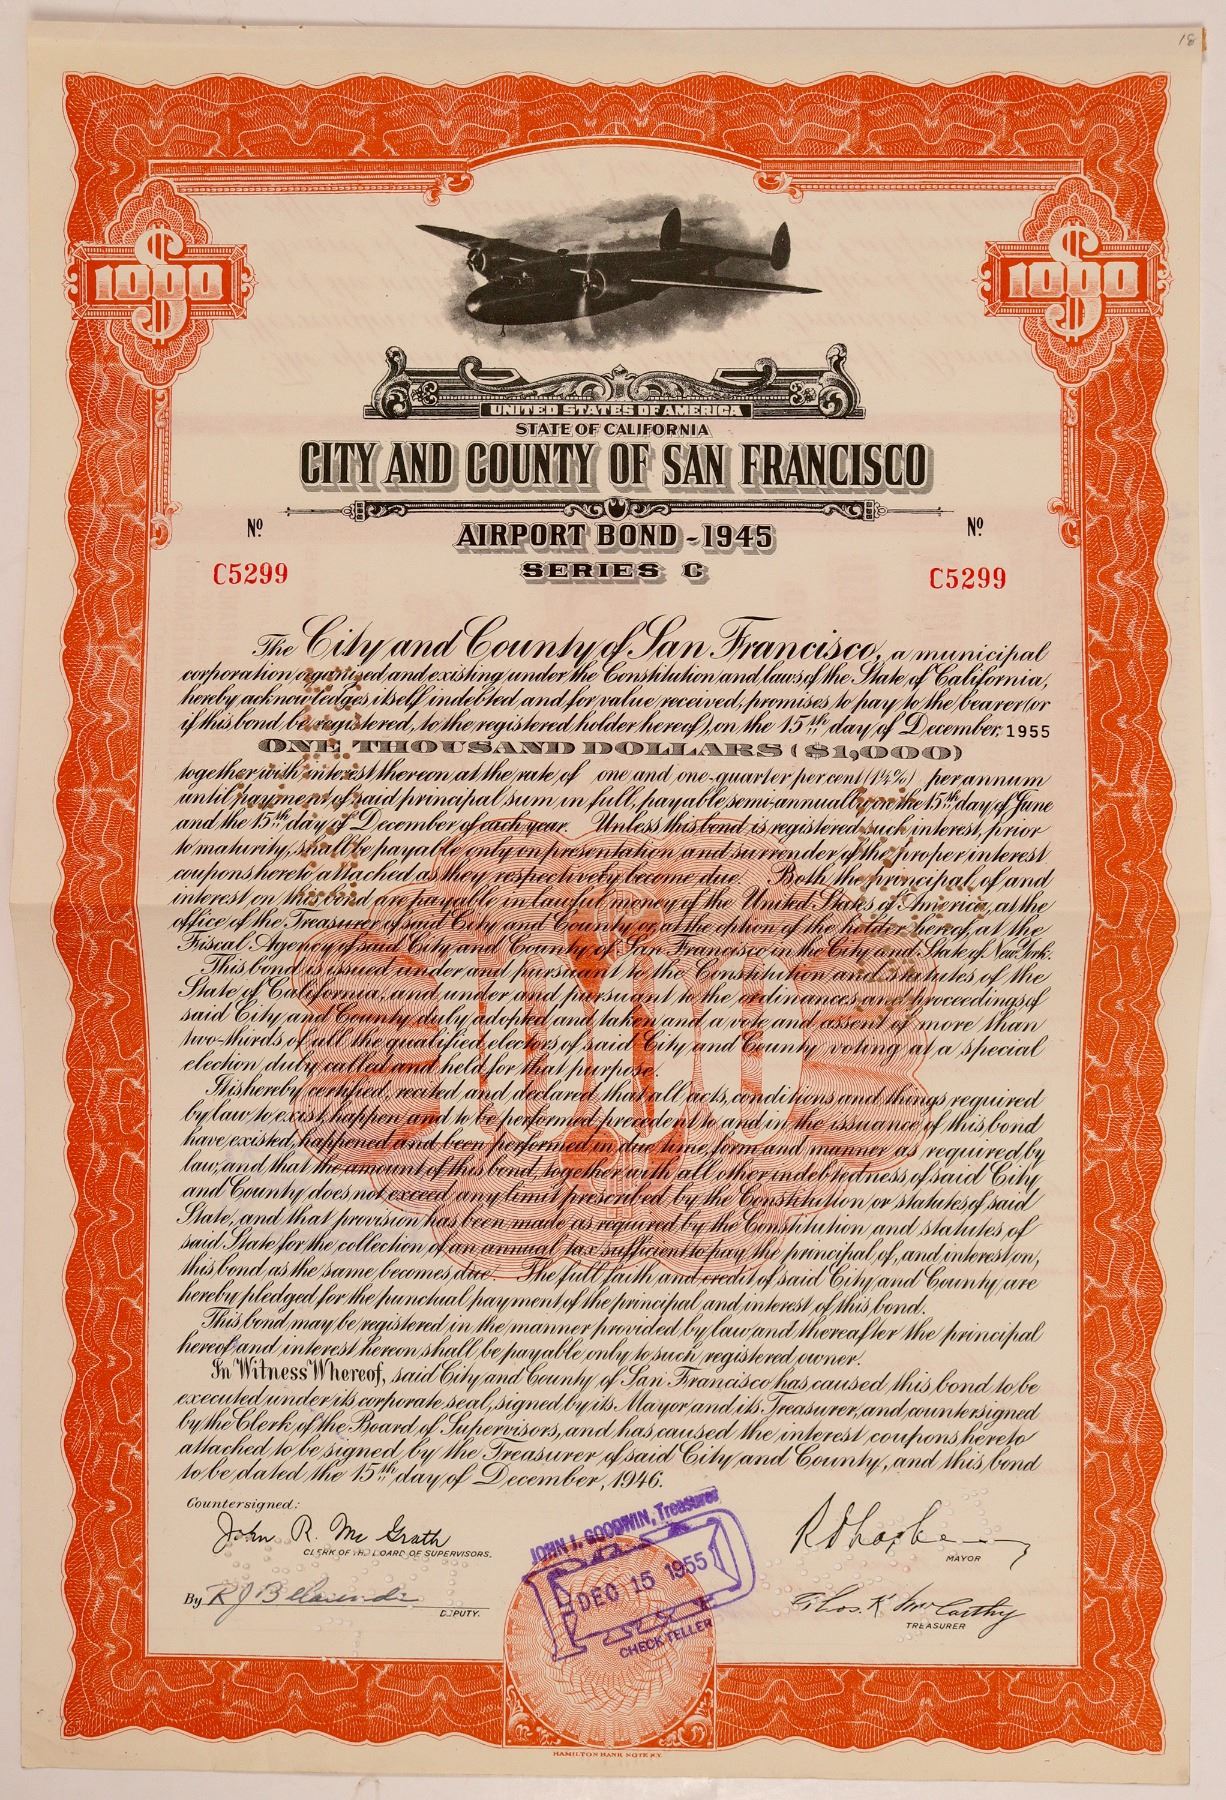 18
$1000 $1000
UNITED STATES OF AMERICA
STATE OF CALIFORNIA
CITY AND COUNTY OF SAN FRANCISCO
Nº Nº
AIRPORT BOND - 1945
C5299 SERIES C C5299
The City and County of San Francisco, a municipal
corporation organized and existing under the Constitution and laws of the State of California,
hereby acknowledges itself indebted and for value received, promises to pay to the bearer (or
if this bond be registered, to the registered holder hereof), on the 15th day of December, 1955
ONE THOUSAND DOLLARS ($1,000)
together with interest thereon at the rate of one and one-quarter per cent (1¼%) per annum
until payment of said principal sum in full, payable semi-annually on the 15th day of June
and the 15th day of December of each year. Unless this bond is registered such interest, prior
to maturity, shall be payable only on presentation and surrender of the proper interest
coupons hereto attached as they respectively become due. Both the principal of and
interest on this bond are payable in lawful money of the United States of America, at the
office of the Treasurer of said City and County or, at the option of the holder hereof, at the
Fiscal Agency of said City and County of San Francisco in the City and State of New York.
This bond is issued under and pursuant to the Constitution and statutes of the
State of California, and under and pursuant to the ordinances and proceedings of
said City and County duly adopted and taken and a vote and assent of more than
two-thirds of all the qualified electors of said City and County voting at a special
election duly called and held for that purpose.
It is hereby certified, recited and declared that all acts, conditions and things required
by law to exist, happen and to be performed precedent to and in the issuance of this bond
have existed, happened and been performed in due time, form and manner as required by
law, and that the amount of this bond, together with all other indebtedness of said City
and County does not exceed any limit prescribed by the Constitution or statutes of said
State, and that provision has been made as required by the Constitution and statutes of
said State for the collection of an annual tax sufficient to pay the principal of, and interest on,
this bond as the same becomes due. The full faith and credit of said City and County are
hereby pledged for the punctual payment of the principal and interest of this bond.
This bond may be registered in the manner provided by law and thereafter the principal
hereof and interest hereon shall be payable only to such registered owner.
In Witness Whereof, said City and County of San Francisco has caused this bond to be
executed under its corporate seal, signed by its Mayor and its Treasurer, and countersigned
by the Clerk of the Board of Supervisors, and has caused the interest coupons hereto
attached to be signed by the Treasurer of said City and County, and this bond
to be dated the 15th day of December, 1946.
Countersigned:
John R. McGrath
CLERK OF THE BOARD OF SUPERVISORS.
By
DEPUTY.
JOHN J. GOODWIN, Treasurer
DEC 15 1955
CHECK TELLER
MAYOR
Thos. K. McCarthy
TREASURER
HAMILTON BANK NOTE N.Y.